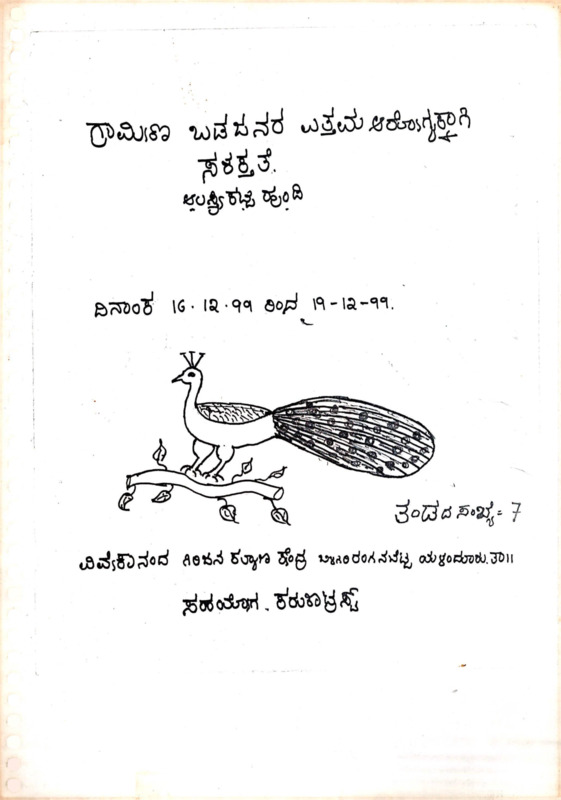 ಗ್ರಾಮೀಣ ಬಡಜನರ ಉತ್ತಮ ಆರೋಗ್ಯಕ್ಕಾಗಿ
ಸಶಕ್ತತೆ.
ಹುಂಡಿ
ದಿನಾಂಕ 16.12.99 ರಿಂದ 19-12-99.
ತಂಡದ ಸಂಖ್ಯೆ = 7
ವಿವೇಕಾನಂದ ಗಿರಿಜನ ಕಲ್ಯಾಣ ಕೇಂದ್ರ ಬಿಳಿಗಿರಿರಂಗನಬೆಟ್ಟ ಯಳಂದೂರು. ತಾ॥
ಸಹಯೋಗ. ಕರುಣಾಟ್ರಸ್ಟ್